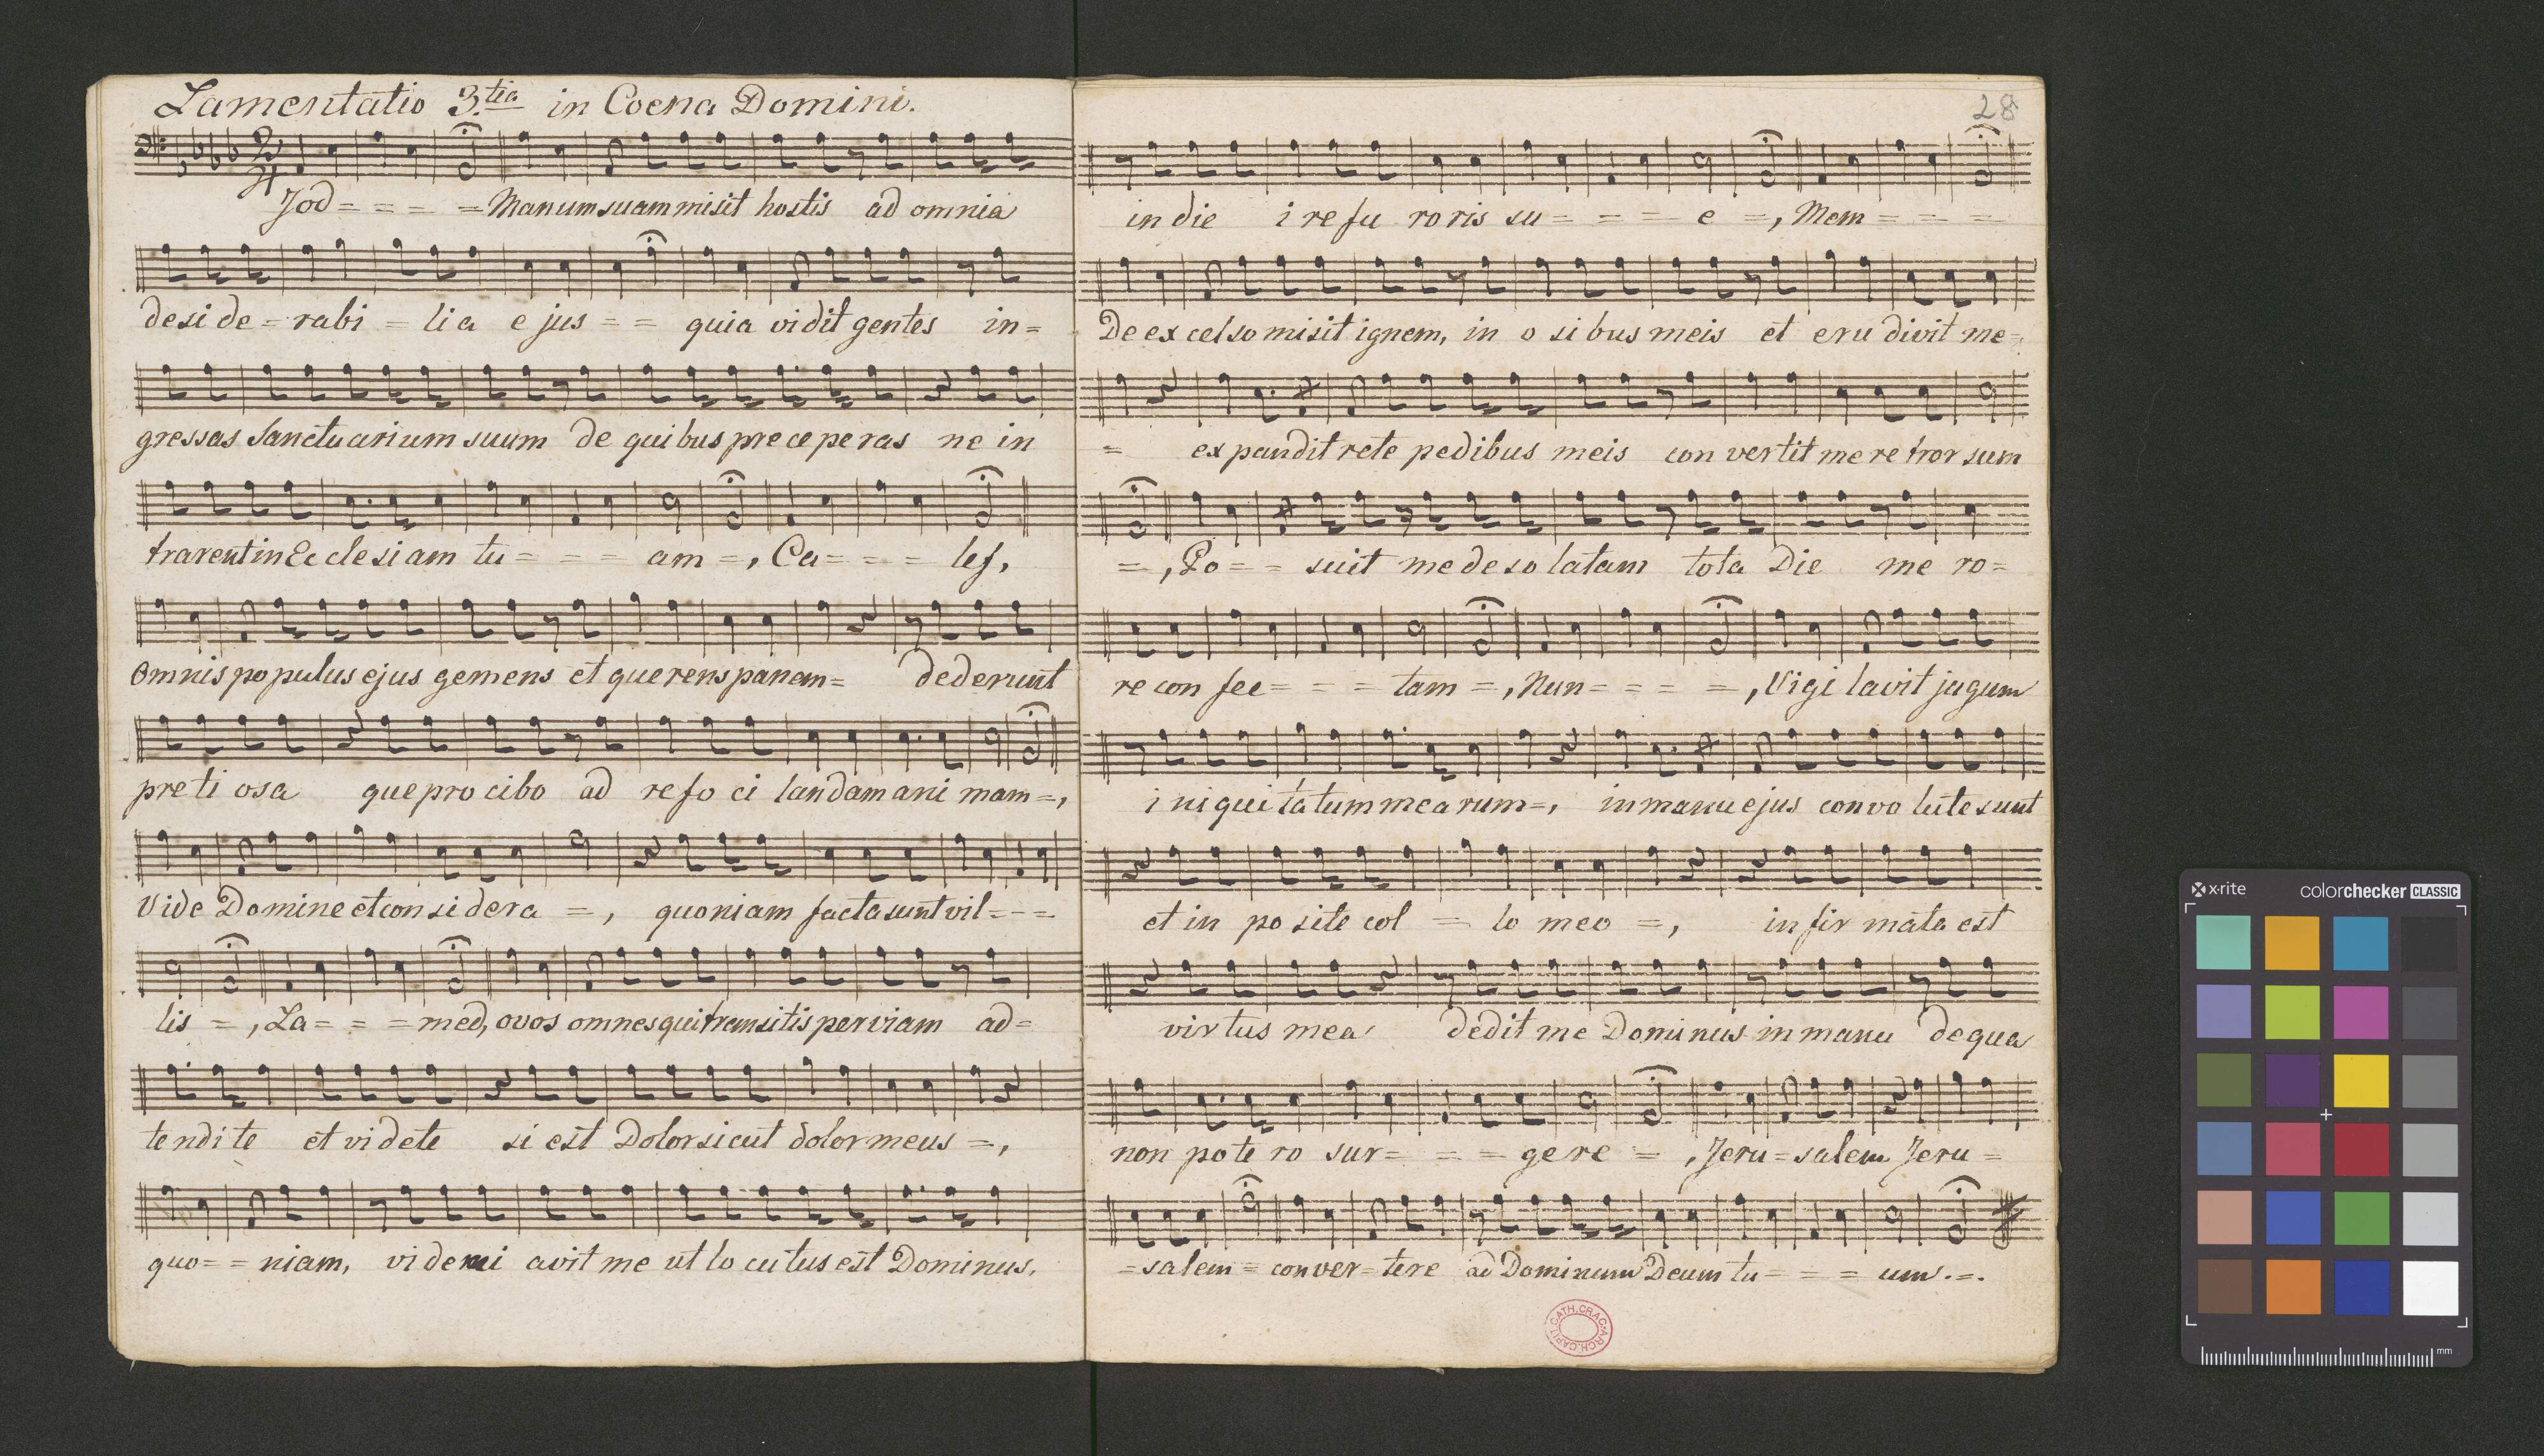 Lamentatio 3.tia in Coena Domini.
Jod = = = = Manum suam misit hostis ad omnia
desi de = rabi = lia e jus = = quia vidit gentes in=
gressas Sanctuarium suum de quibus pre ce pe ras ne in
trarent in Ecclesiam tu = = = am =, Ca = = = lef,
Omnis populus ejus gemens et querens panem = dederunt
preti osa que pro cibo ad refo ci landam ani mam =,
Vide Domine et con si dera =, quoniam facta sunt vil = = =
lis =, La = = = med, o vos omnes qui transitis per viam ad=
tendite et videte si est Dolor sicut dolor meus =,
quo = = niam, videmi avit me ut lo cutus est Dominus,
28
in die i re fu roris su = = = e =, Mem = = =
De ex celso misit ignem, in o si bus meis et eru divit me =
= expandit rete pedibus meis con vertit me re tror sum
=, Po = = suit me de so latam tota Die me ro =
re con fec = = = tam =, Nun = = = =, Vigi lavit jugum
i ni qui ta tum mea rum =, in manu ejus convo lute sunt
et in po site col = lo meo =, in fir mata est
virtus mea dedit me Dominus in manu de qua
non pote ro sur = = = gere =, Jeru = salem Jeru =
= salem = conver = tere ad Dominum Deum tu = = = um. =.
ARCH. CAPIT. CATH. CRAC.
x-rite
colorchecker CLASSIC
mm